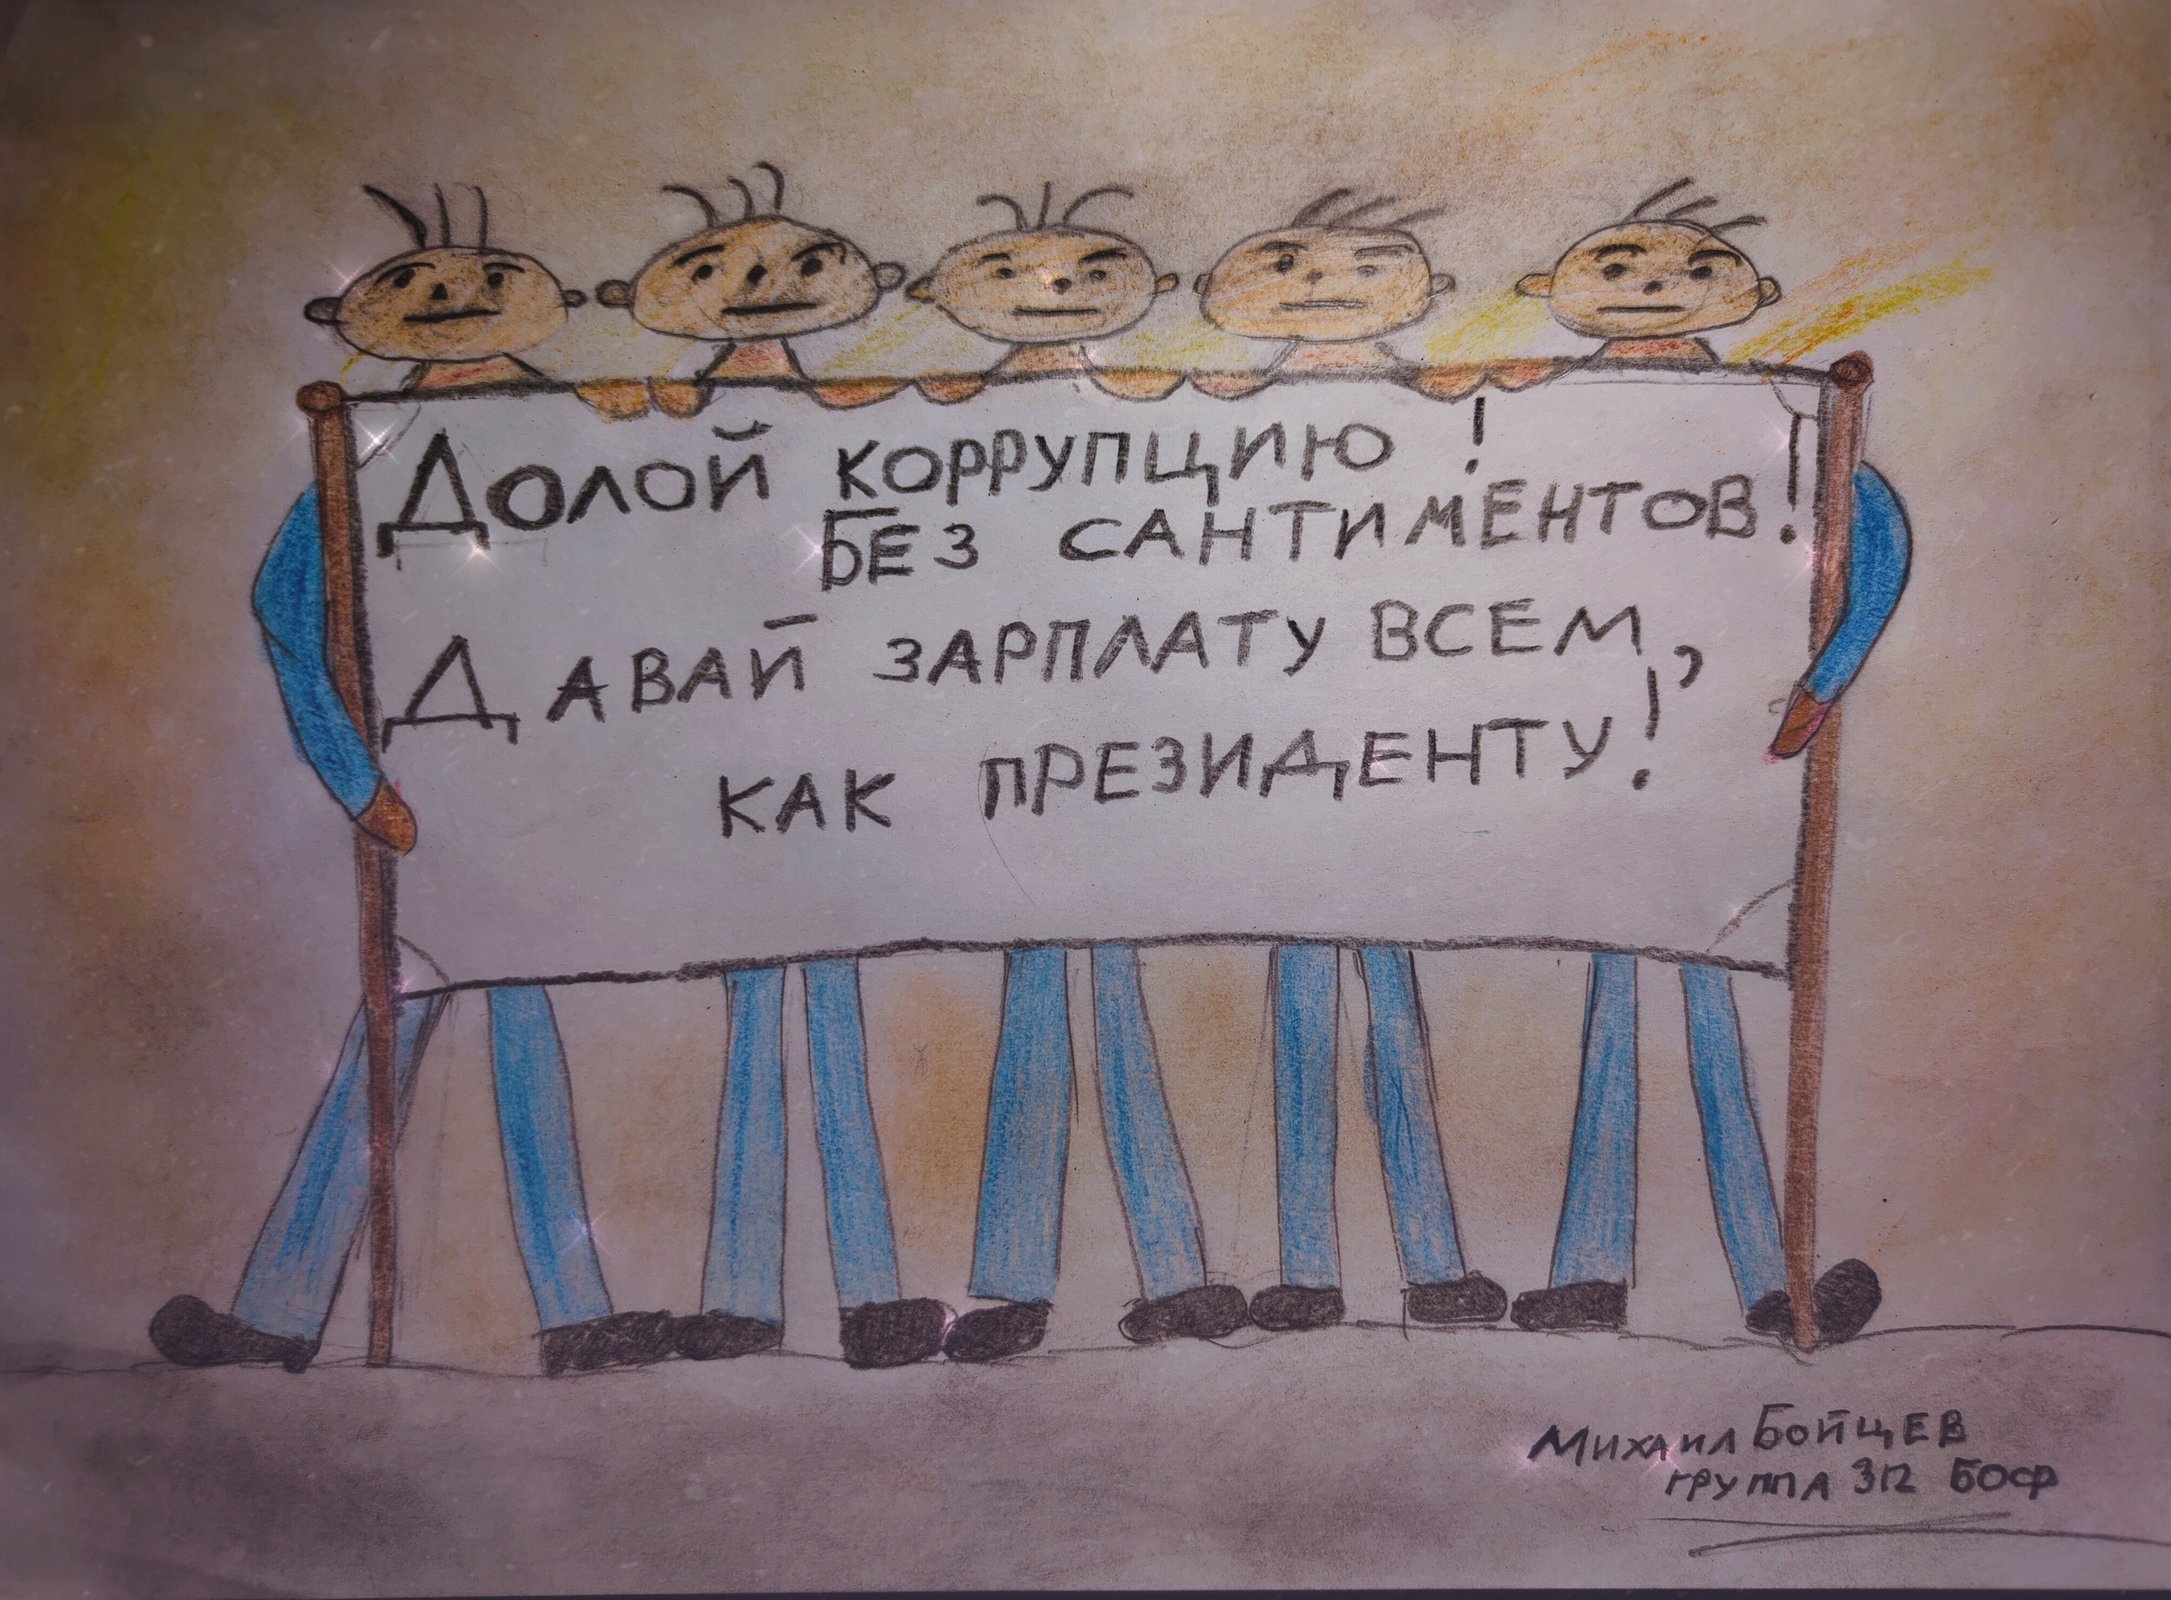 Долой коррупцию!
Без сантиментов!
Давай зарплату всем,
как президенту!
Михаил Бойцев
группа 312 БОФ